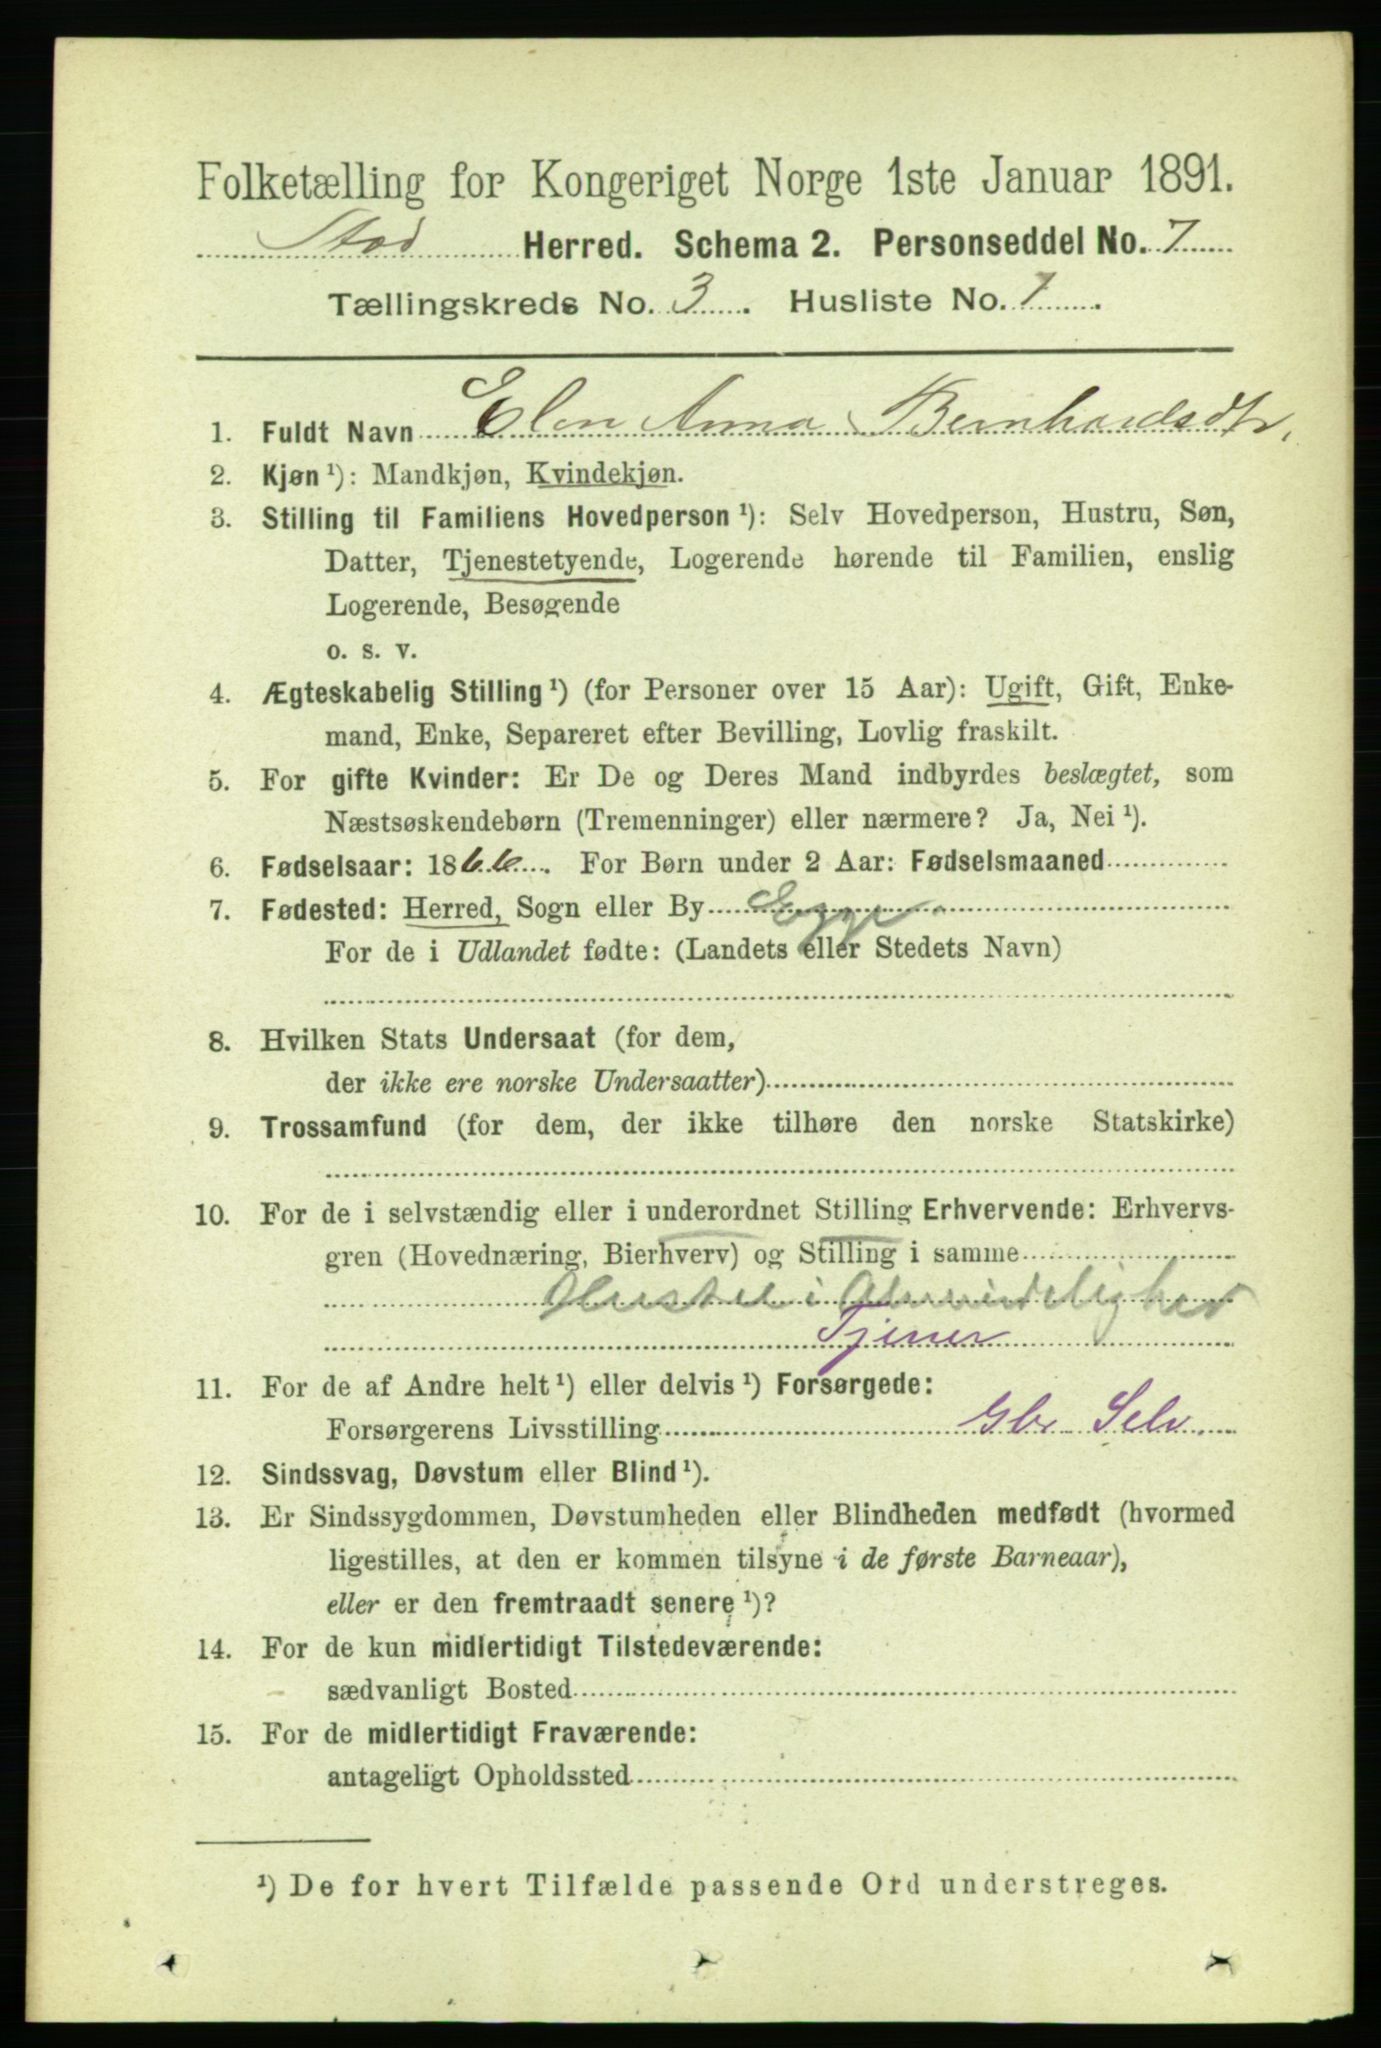 Folketælling for Kongeriget Norge 1ste Januar 1891.
Stod Herred. Schema 2. Personseddel No. 7
Tællingskreds No. 3. Husliste No. 7.
1. Fuldt Navn Elen Anna Bernhardsdtr.
2. Kjøn ¹): Mandkjøn, Kvindekjøn.
3. Stilling til Familiens Hovedperson ¹): Selv Hovedperson, Hustru, Søn,
Datter, Tjenestetyende, Logerende hørende til Familien, enslig
Logerende, Besøgende
o. s. v.
4. Ægteskabelig Stilling ¹) (for Personer over 15 Aar): Ugift, Gift, Enke-
mand, Enke, Separeret efter Bevilling, Lovlig fraskilt.
5. For gifte Kvinder: Er De og Deres Mand indbyrdes beslægtet, som
Næstsøskendebørn (Tremenninger) eller nærmere? Ja, Nei ¹).
6. Fødselsaar: 1866. For Børn under 2 Aar: Fødselsmaaned
7. Fødested: Herred, Sogn eller By Egge
For de i Udlandet fødte: (Landets eller Stedets Navn)
8. Hvilken Stats Undersaat (for dem,
der ikke ere norske Undersaatter)
9. Trossamfund (for dem, der ikke tilhøre den norske Statskirke)
10. For de i selvstændig eller i underordnet Stilling Erhvervende: Erhvervs-
gren (Hovednæring, Bierhverv) og Stilling i samme
Husstel i Almindelighed
Tjener
11. For de af Andre helt ¹) eller delvis ¹) Forsørgede:
Forsørgerens Livsstilling Gbr. Selv.
12. Sindssvag, Døvstum eller Blind ¹).
13. Er Sindssygdommen, Døvstumheden eller Blindheden medfødt (hvormed
ligestilles, at den er kommen tilsyne i de første Barneaar),
eller er den fremtraadt senere ¹)?
14. For de kun midlertidigt Tilstedeværende:
sædvanligt Bosted
15. For de midlertidigt Fraværende:
antageligt Opholdssted
¹) De for hvert Tilfælde passende Ord understreges.